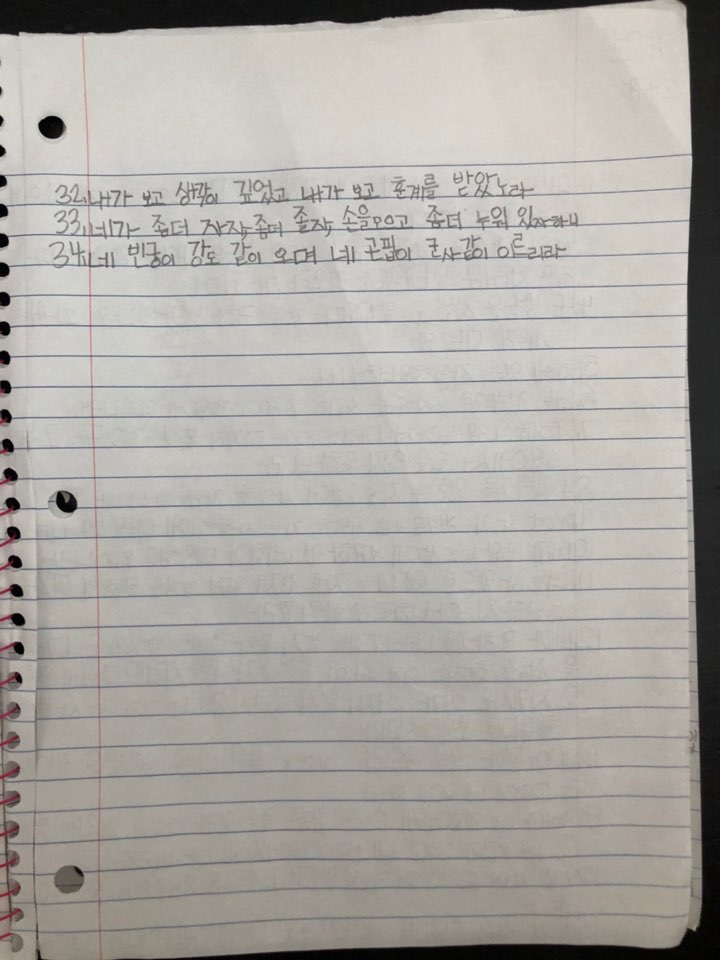 32. 내가 보고 생각이 깊었고 내가 보고 훈계를 받았노라
33. 네가 좀더 자자, 좀더 졸자, 손을모으고 좀더 누워 있자하니
34. 네 빈궁이 강도 같이 오며 네 곤핍이 군사같이 이르리라